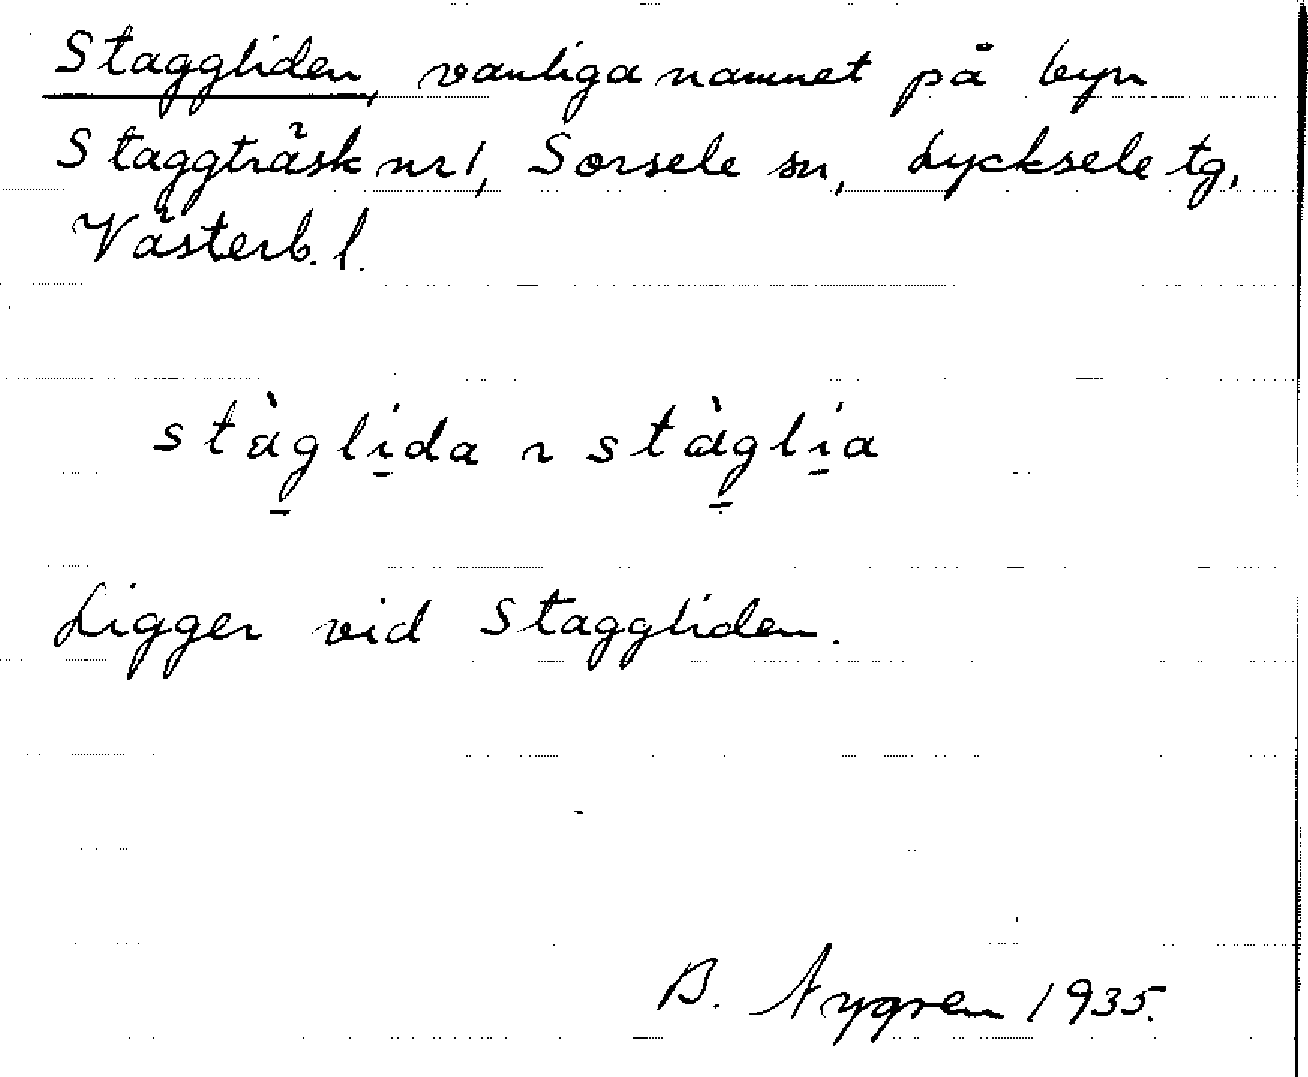 Staggliden, vanliga namnet på byn
Staggträsk nr 1, Sorsele sn, Lycksele tg,
Västerb. l.
stàg̱lḭda ~ stàg̱lḭa
Ligger vid Staggliden.
B. Nygren 1935.